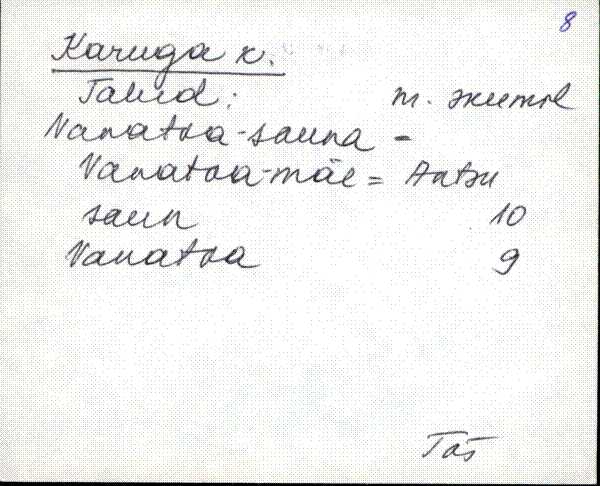 8
Karuga k.
Talud:
Vanatoa-sauna =
Vanatoa-mäe = Antsu
saun 10
Vanatoa 9